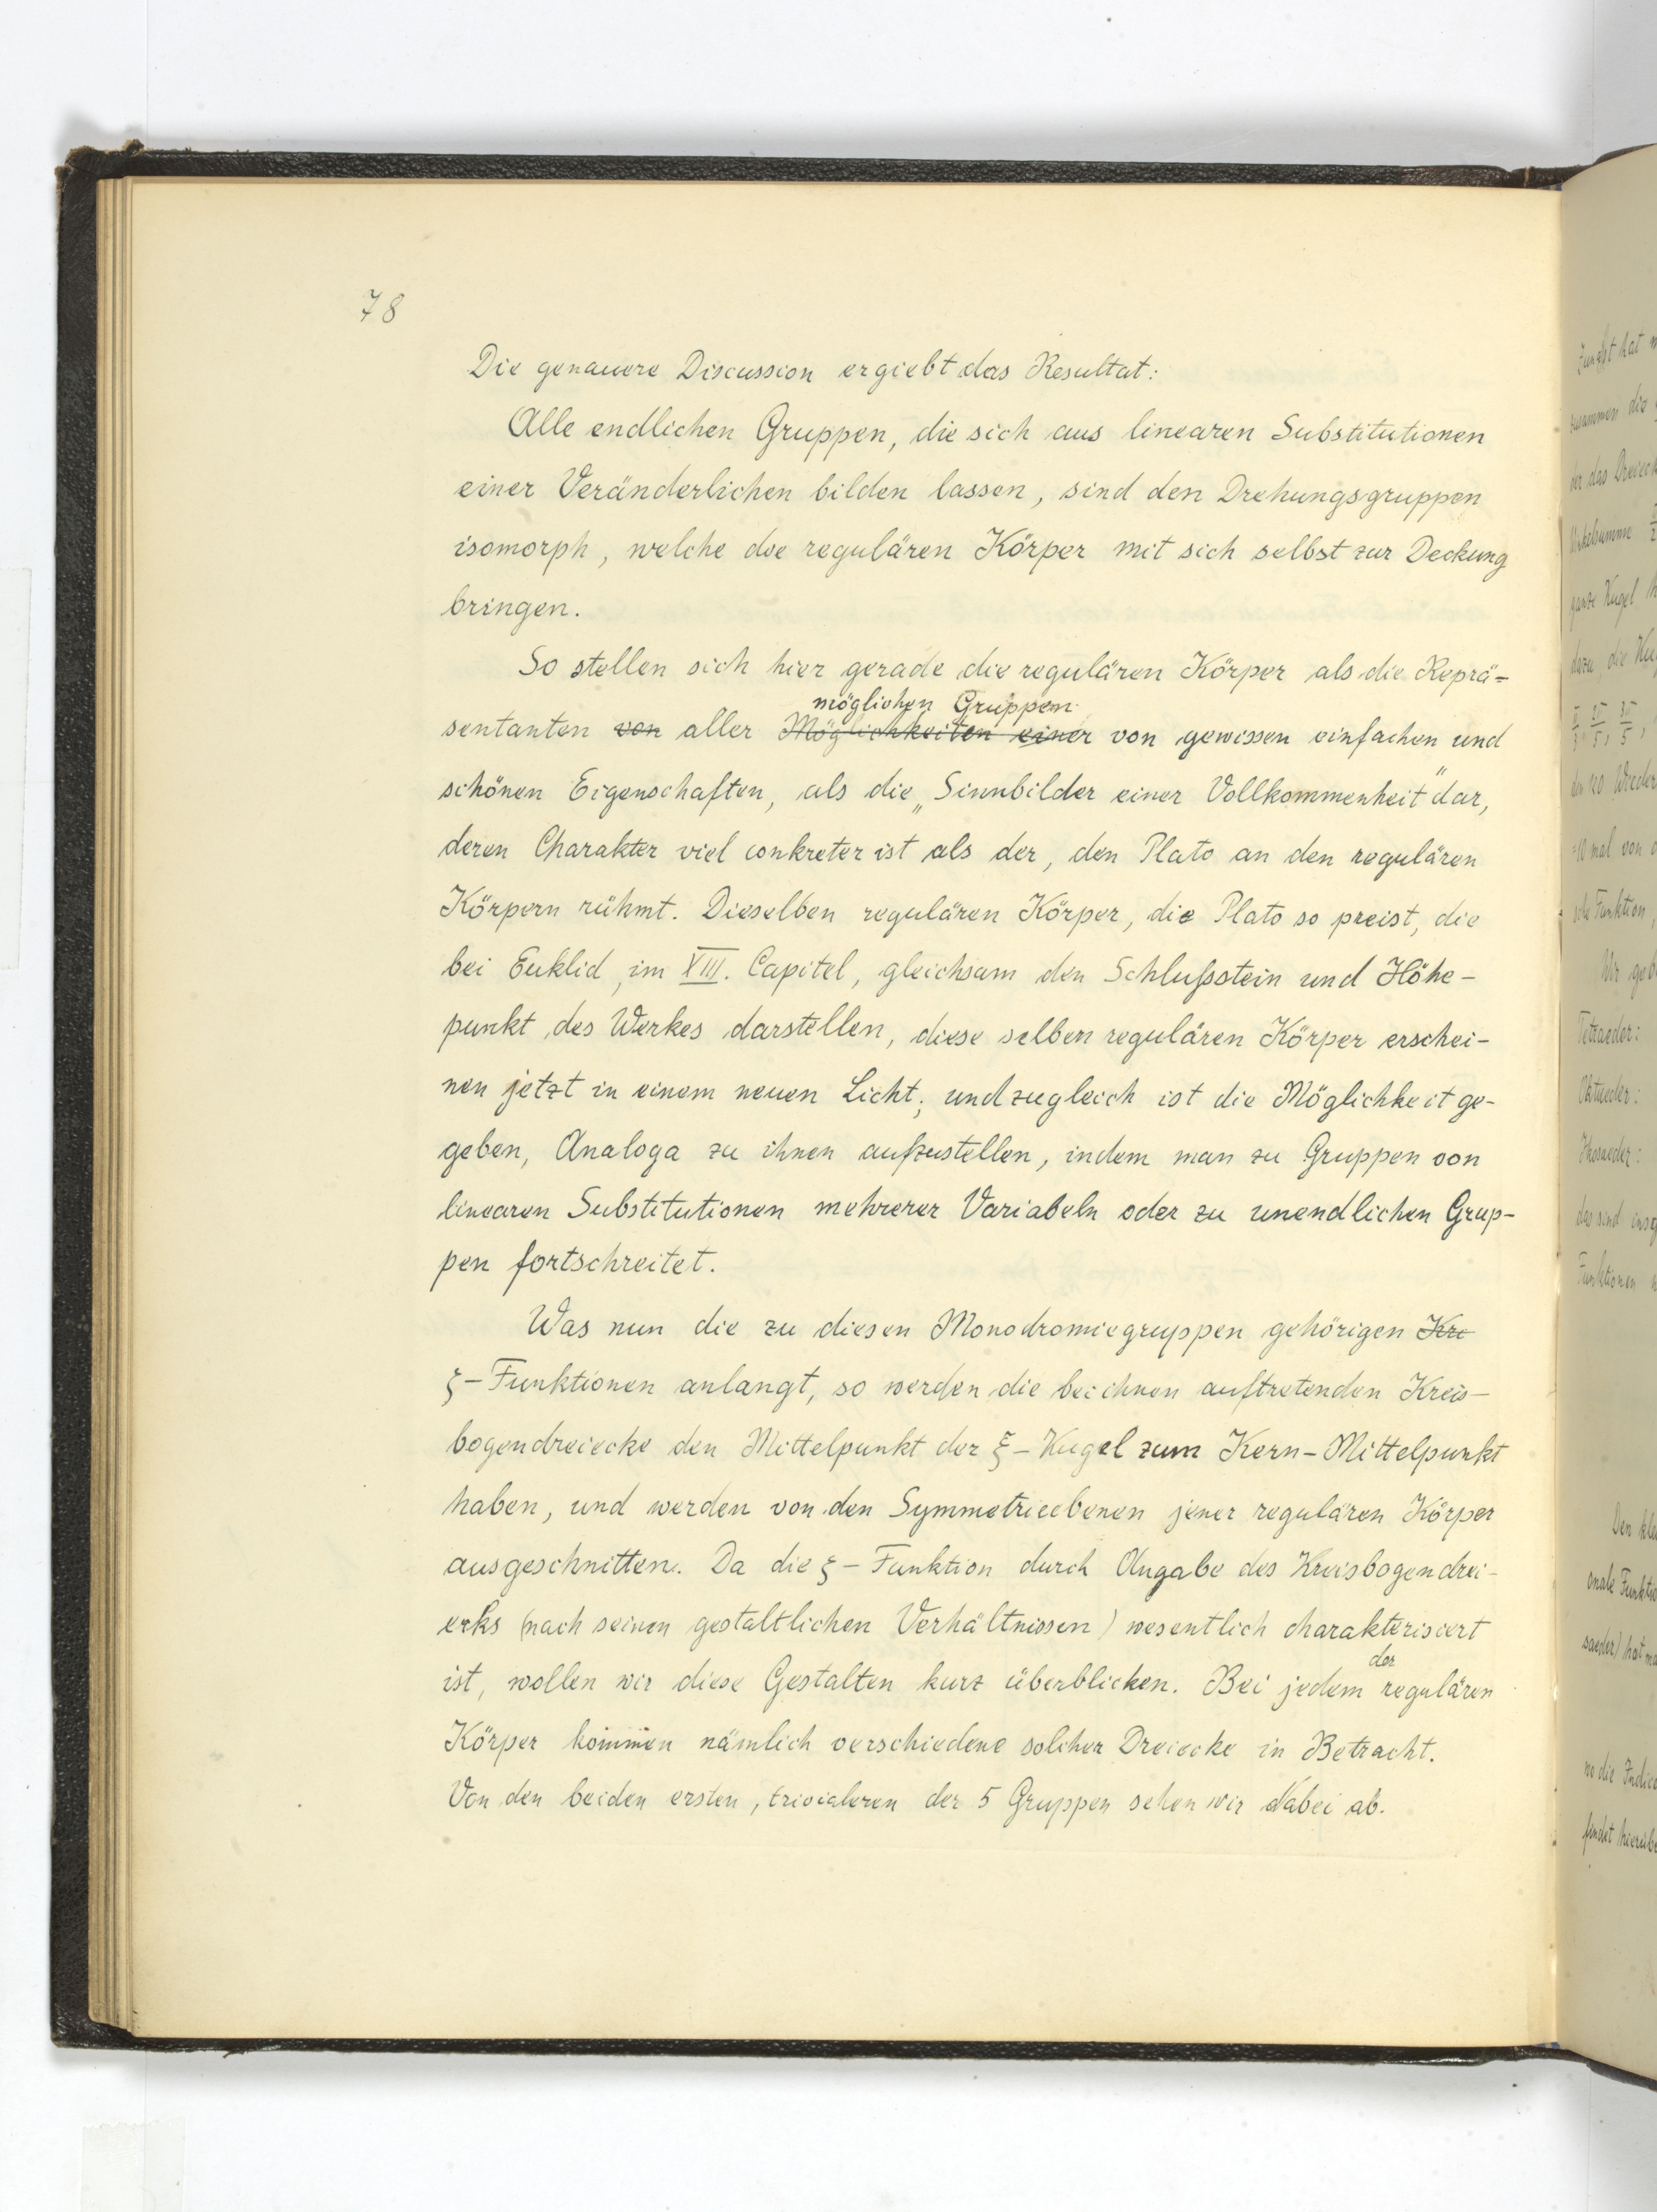 78
Die genauere Discussion ergiebt das Resultat:
Alle endlichen Gruppen, die sich aus linearen Substitutionen
einer Veränderlichen bilden lassen, sind den Drehungsgruppen
isomorph, welche die regulären Körper mit sich selbst zur Deckung
bringen.
So stellen sich hier gerade die regulären Körper als die Reprä=
möglichen Gruppen
sentanten von aller Möglichkeiten einer von gewissen einfachen und
schönen Eigenschaften, als die „Sinnbilder einer Vollkommenheit" dar,
deren Charakter viel conkreter ist als der, den Plato an den regulären
Körpern rühmt. Dieselben regulären Körper, die Plato so preist, die
bei Euklid, im XIII. Capitel, gleichsam den Schlußstein und Höhe-
punkt des Werkes darstellen, diese selben regulären Körper erschei-
nen jetzt in einem neuen Licht; und zugleich ist die Möglichkeit ge-
geben, Analoga zu ihnen aufzustellen, indem man zu Gruppen von
linearen Substitutionen mehrerer Variabeln oder zu unendlichen Grup-
pen fortschreitet.
Was nun die zu diesen Monodromiegruppen gehörigen Kre
ξ-Funktionen anlangt, so werden die bei ihnen auftretenden Kreis-
bogendreiecke den Mittelpunkt der ξ-Kugel zum Kern-Mittelpunkt
haben, und werden von den Symmetrieebenen jener regulären Körper
ausgeschnitten. Da die ξ-Funktion durch Angabe des Kreisbogendrei-
ecks (nach seinen gestaltlichen Verhältnissen) wesentlich charakterisiert
der
ist, wollen wir diese Gestalten kurz überblicken. Bei jedem regulären
Körper kommen nämlich verschiedene solcher Dreiecke in Betracht.
Von den beiden ersten, trivialeren der 5 Gruppen sehen wir dabei ab.
Tetraeder:
Oktaeder:
Ikosaeder: